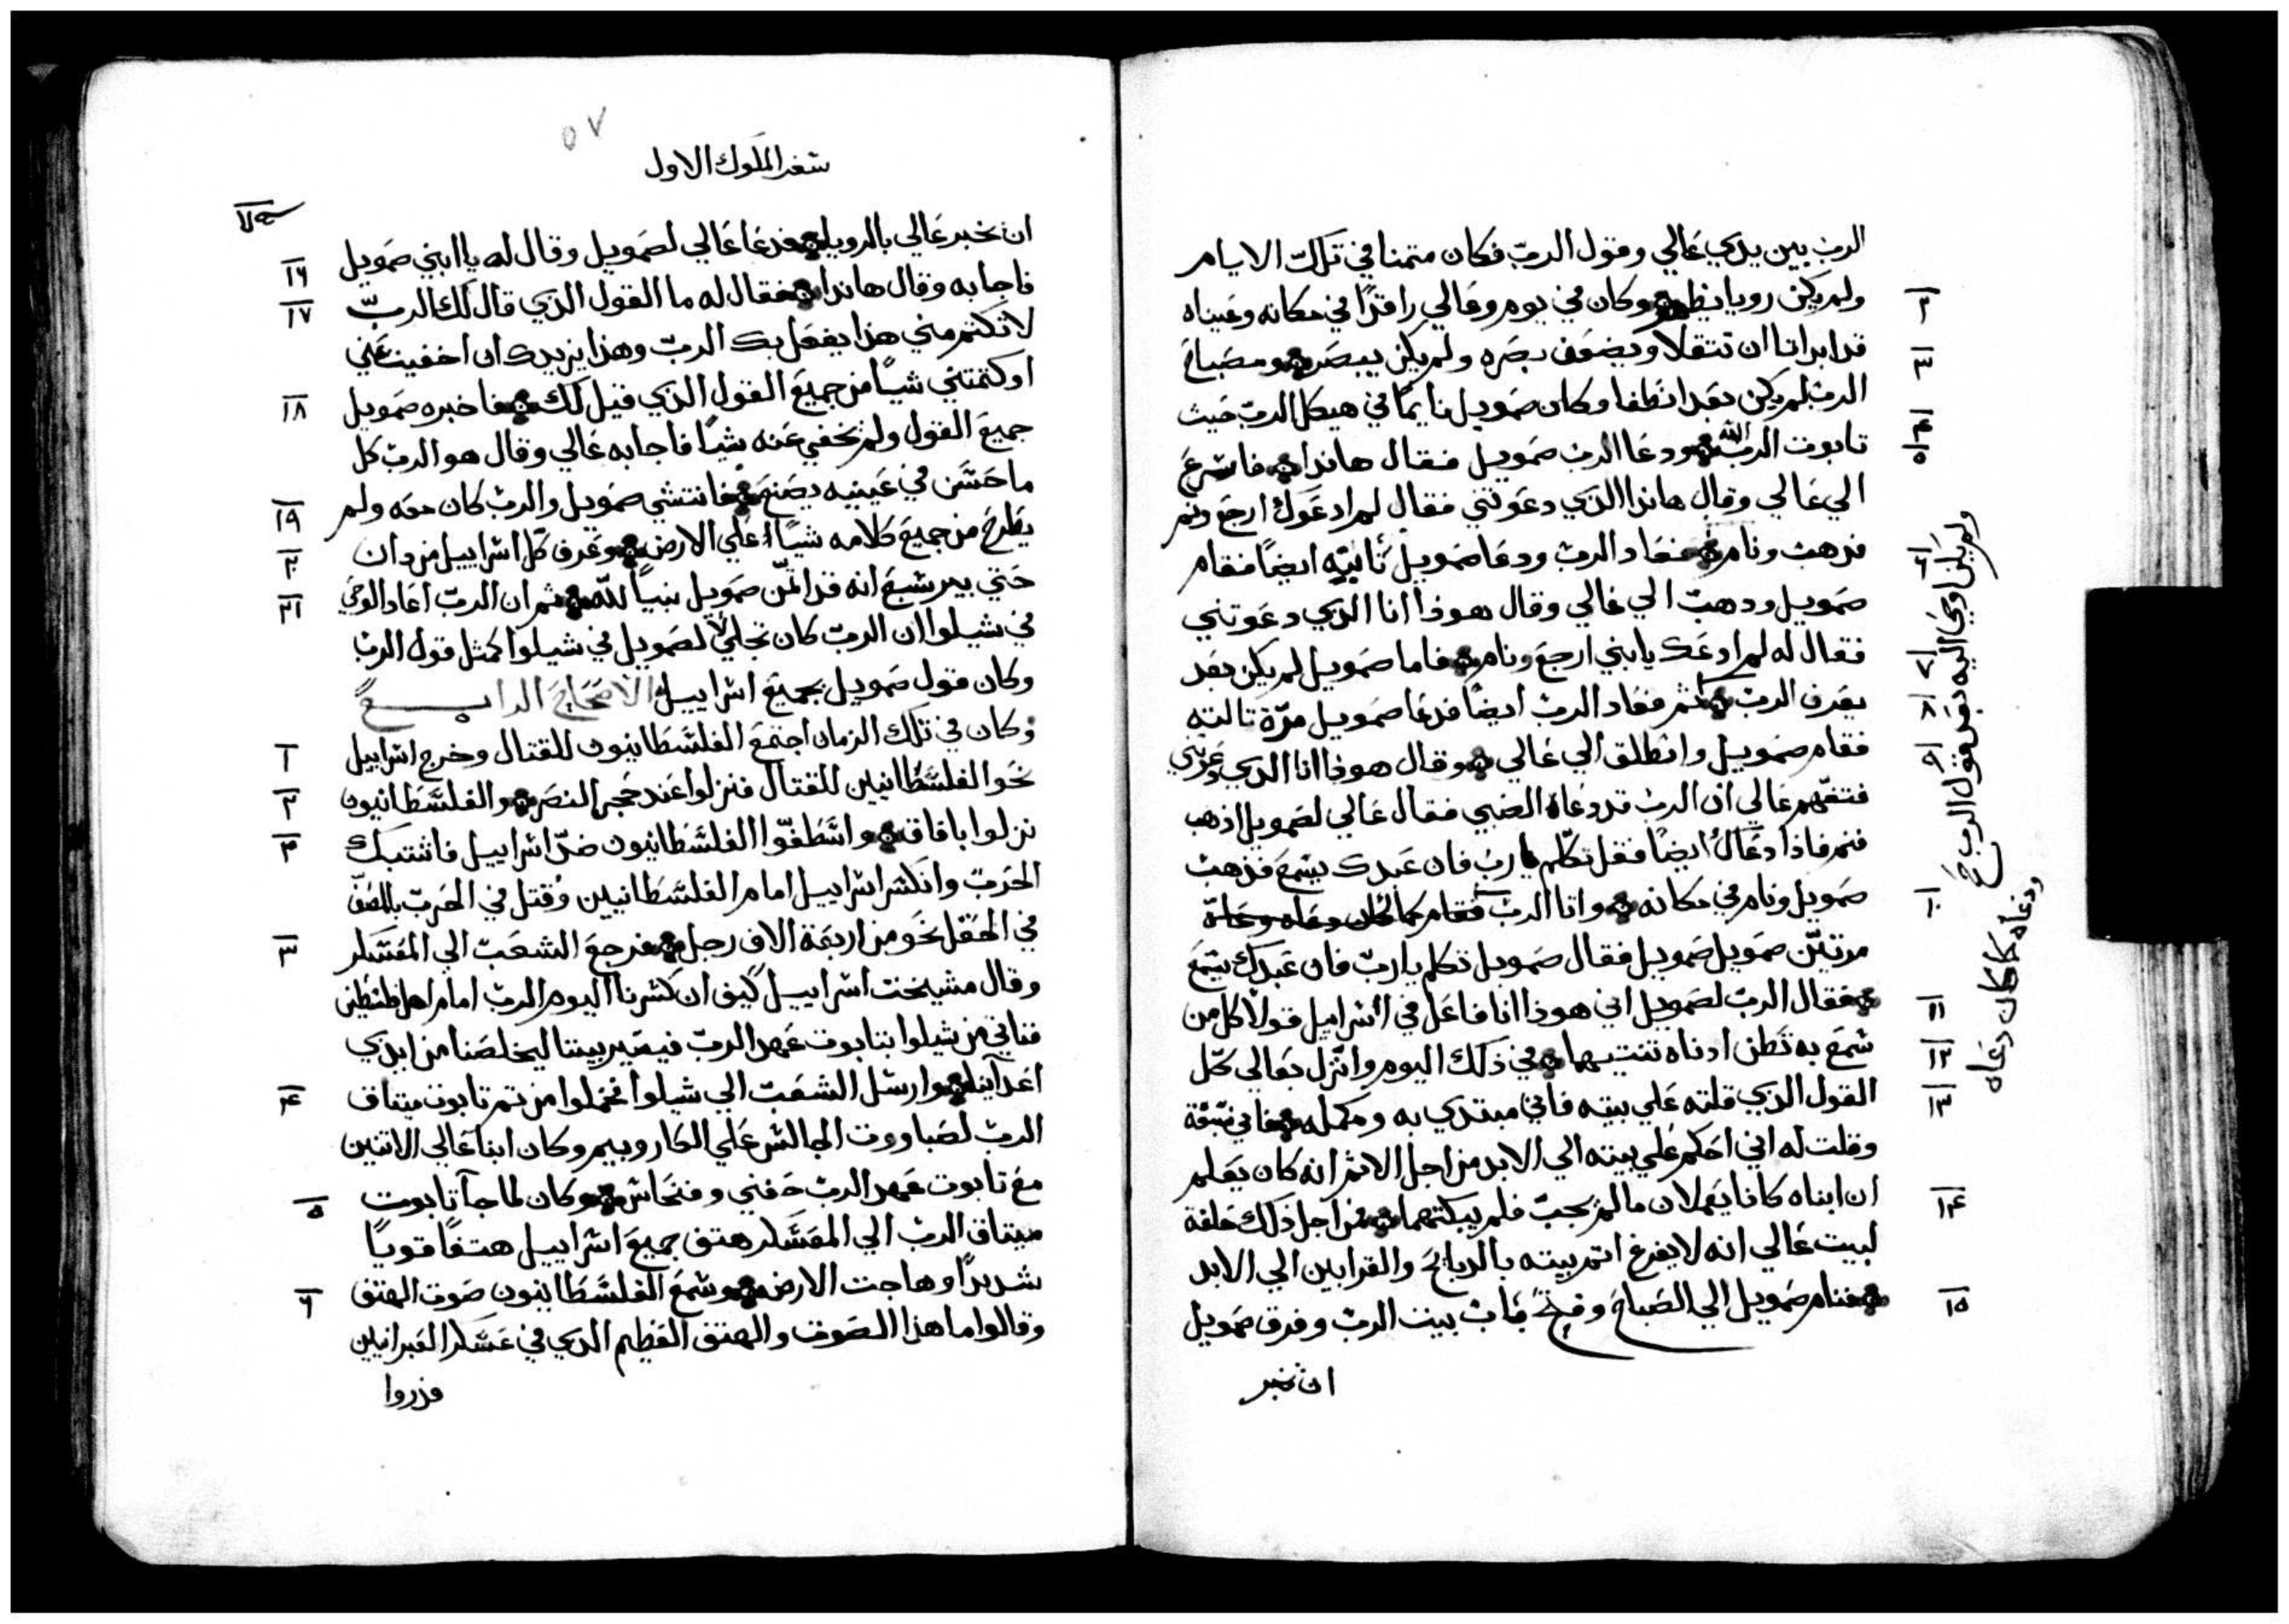 الرب بين يدي عالي وقول الرب فكان متمنا في تلك الايام
ولم يكن رويا يظهر وكان في يوم وعالي راقدًا في مكانه وعيناه
قد ابداتا ان تتقلا ويضعف بصره ولم يكن يبصر ومصباح
الرب لم يكن بعد انطفا وكان صمويل نايمًا في هيكل الرب حيث
تابوت الرب الله ودعا الرب صمويل فقال هاندا فاسرع
الي عالي وقال هاندا الدي دعوتني فقال لم ادعوك ارجع ونم
فدهب ونام فعاد الرب ودعا صمويل ثانيه ايضًا فقام
صمويل ودهب الي عالي وقال هوذا انا الدي دعوتني
فقال له لم ادعك يابني ارجع ونام فاما صمويل لم يكن بعد
يعرف الرب ثم فعاد الرب ايضًا فدعا صمويل مرّة تالته
فقام صمويل وانطلق الي عالي وقال هوذا انا الدي دعوتني
فتفهم عالي ان الرب قد دعاه الصبي فقال عالي لصمويل اذهب
فنم فاذا دعاك ايضًا فقل تكلم يارب فان عبدك يسمع فذهب
صمويل ونام في مكانه واتا الرب فقام
مرتين صمويل صمويل فقال صمويل تكلم يا رب فان عبدك يسمع
فقال الرب لصمويل اني هوذا انا فاعل في اسراييل قولًا كل من
سمع به تطن ادناه تنتيهما في ذلك اليوم وانزل بعالي كل
القول الدي قلته علي بيته فاني مبتدي به ومكمله فاني
وقلت له اني احكم علي بيته الي الابد من اجل الاثم انه كان يعلم
ان ابناه كانا يعملان ما لم يجب فلم يبكتهما فمن اجل ذلك حلفة
لبيت عالي انه لا يفرغ اثم بيته بالدبايح والقرابين الي الابد
فنام صمويل الي الصباح وفتح باب بيت الرب وفرق صمويل
ان نخبر
٢
٣
٤
٥
٦
٧
٨
٩
١٠
١١
١٢
١٣
١٤
١٥
ولم يكن اوحي اليه بعد قول الرب صح
ودعاه كما كان دعاه
٥٧
سفر الملوك الاول
ان نخبر عالي بالرويا فدعا عالي لصمويل وقال له يا ابني صمويل
فاجابه وقال هاندا فقال له ما القول الدي قال لك الرب
لا تكتم مني هذا يفعل بك الرب وهذا يزيدك ان اخفيت عني
او كتمتني شيًا من جميع القول الدي قيل لك فاخبره صمويل
جميع القول ولم يخفي عنه شيًا فاجابه عالي وقال هو الرب كل
ما حسن في عينيه يصنع فانتشي صمويل والرب كان معه ولم
يطرح من جميع كلامه شيًا علي الارض وعرف كل اسراييل من دان
حتي بير شبع انه قد اتمن صمويل نبيًا لله ثم ان الرب اعاد الوحي
في شيلوا ان الرب كان تجلي لصمويل في شيلوا كمثل قول الرب
وكان قول صمويل بجميع اسراييل الاصحاح الرابع
وكان في تلك الزمان اجتمع الفلسطانيون للقتال وخرج اسراييل
نحو الفلسطانيين للقتال فنزلوا عند حجر النصر والفلسطانيون
نزلوا بافاق واسطفوا الفلسطانيون ضدّ اسراييل فاشتبك
الحرب وانكسر اسراييل امام الفلسطانيين وقتل في الحرب بالصف
في الحقل نحو من اربعة الاف رجل فرجع الشعب الي المعسكر
وقال مشيخت اسراييل كيف ان كسرنا اليوم الرب امام اهل فلسطين
فناتي من شيلوا بتابوت عهد الرب فيصير بيننا ليخلصنا من ايدي
اعداينا وارسل الشعب الي شيلوا فحملوا من تم تابوت ميتاق
الرب لصباووت الجالس علي الكاروبيم وكان ابنا عالي الاتنين
مع تابوت عهد الرب حفني وفنحاس وكان لما جا تابوت
ميتاق الرب الي المعسكر هتف جميع اسراييل هتفًا قويًا
شديدًا وهاجت الارض وسمع الفلسطانيون صوت الهتف
وقالوا ما هذا الصوت والهتف العظيم الدي في عسكر العبرانيين
فدروا
١٦
١٧
١٨
١٩
٢٠
٢١
١
٢
٣
٤
٥
٦